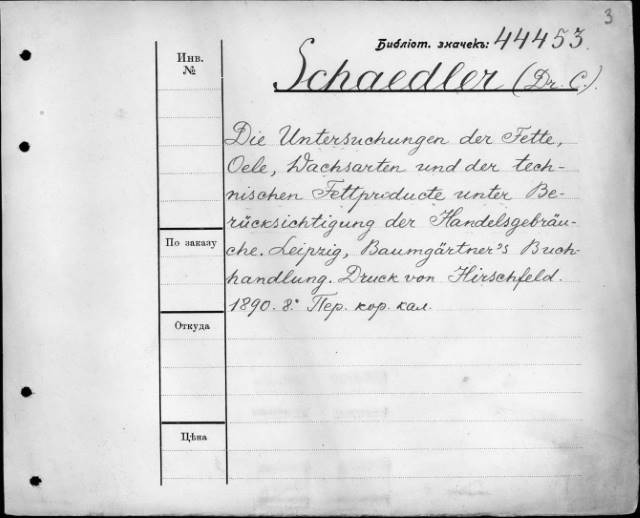 3
Библіот. значекъ: 44453.
Инв.
№
Schaedler (Dr. C.).
Die Untersuchungen der Fette,
Oele, Wachsarten und der tech-
nischen Fettproducte unter Be-
rücksichtigung der Handelsgebräu-
По заказу
che. Leipzig, Baumgärtner's Buch-
handlung. Druck von Hirschfeld.
1890. 8.° Пер. кор. кал.
Откуда
Цѣна